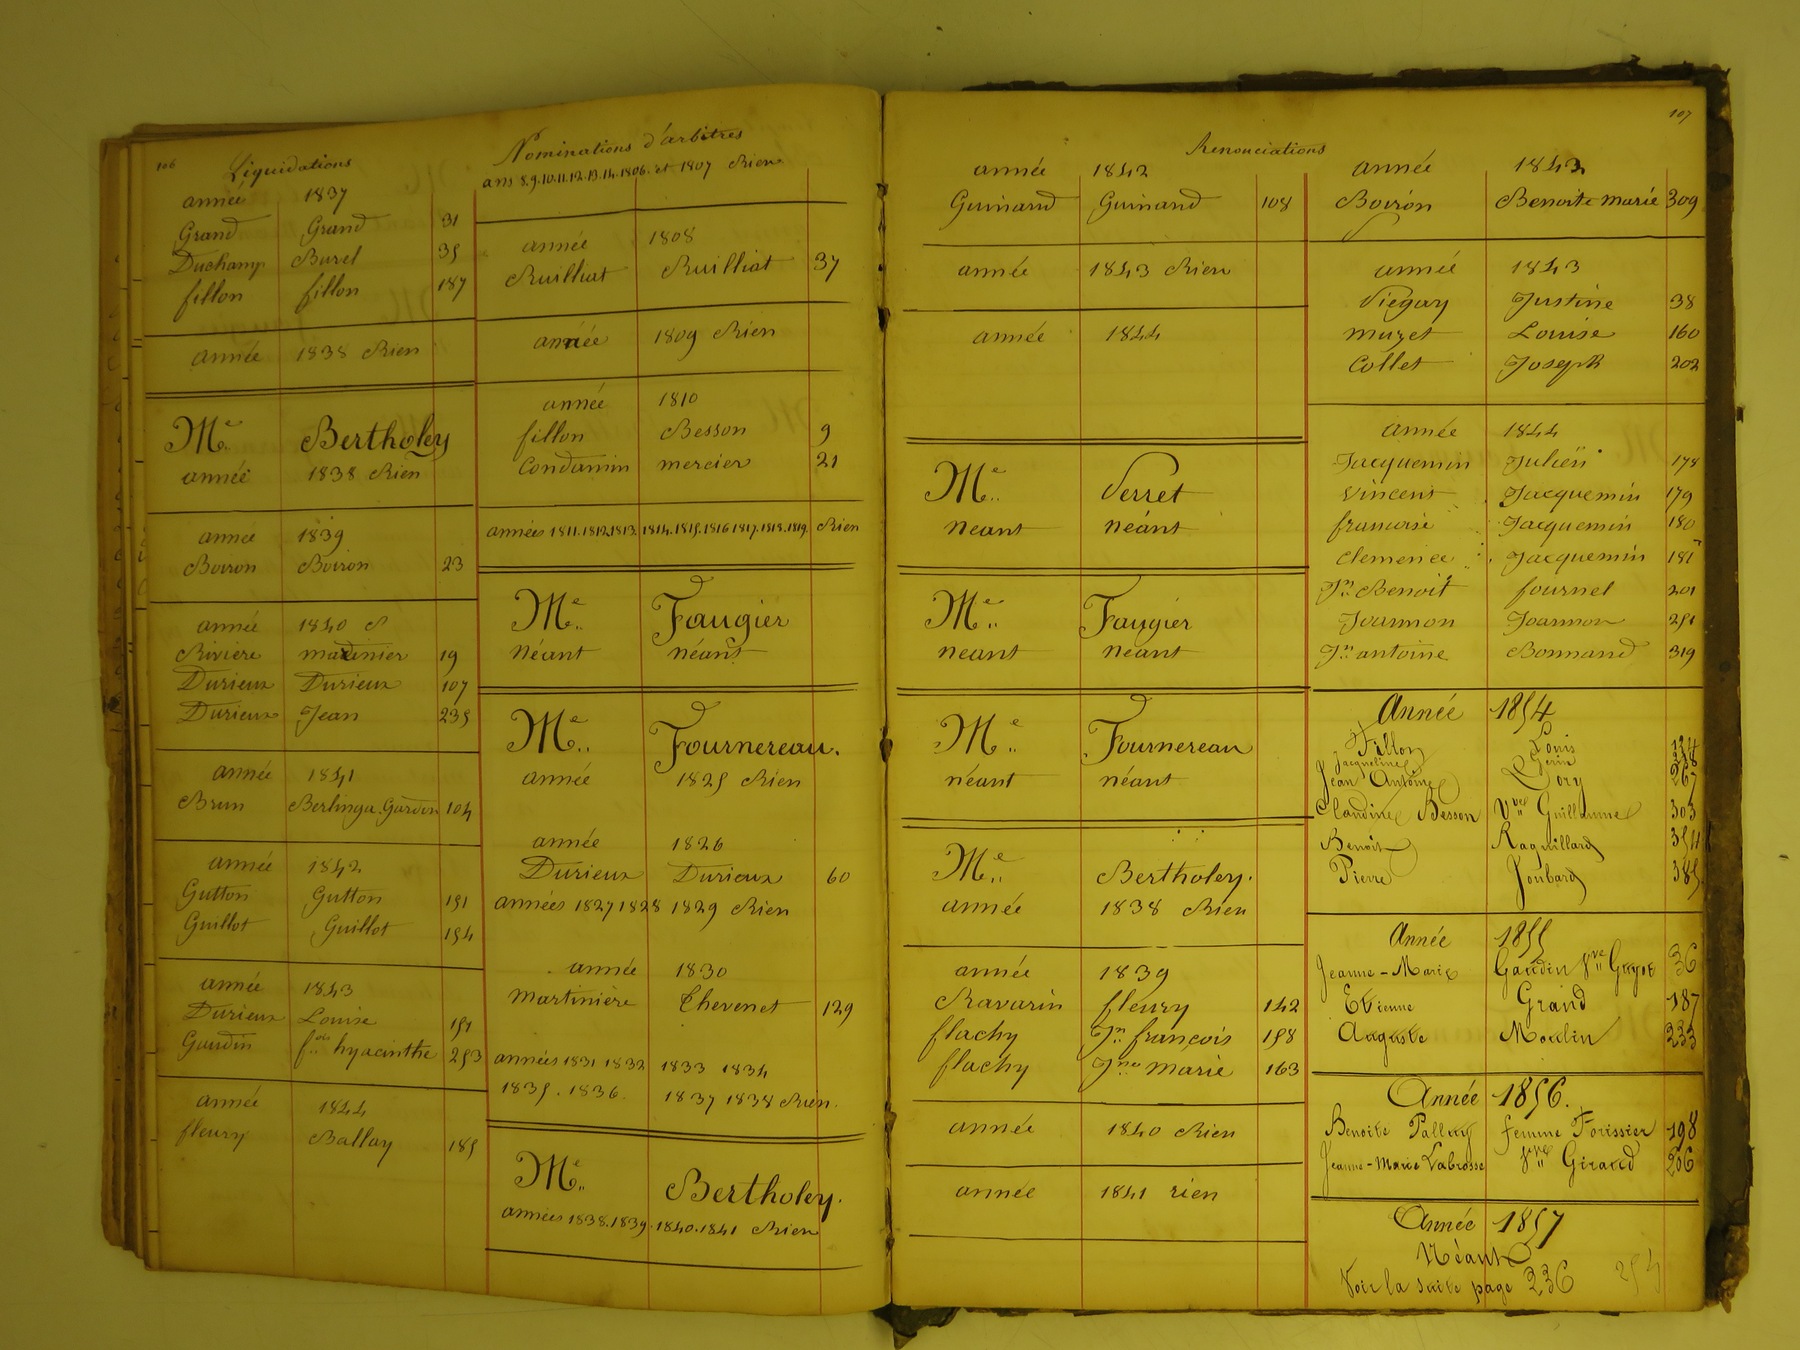 106
Liquidations
année 1837
Grand Grand 31
Duchamp Burel 35
fillon fillon 187
année 1838 Rien
Me Bertholey
année 1838 Rien
année 1839
Boiron Boiron 23
année 1840
Riviere 19
Durieux Durieux 107
Durieux Jean 235
année 1841
Brun Berlinga Gardon 104
année 1842
Gutton Gutton 151
Guillot Guillot 154
année 1843
Durieux Louise 151
Gaudin fois hyacinthe 253
année 1844
fleury Ballay 185
Nominations d'arbitres
ans 8.9.10.11.12.13.14.1806. et 1807 Rien
année 1808
Ruilliat Ruilliat 37
année 1809 Rien
année 1810
fillon Besson 9
Condamin mercier 21
années 1811.1812.1813.1814.1815.1816.1817.1818.1819. Rien
Me Faugier
néant néant
Me Fournereau.
année 1825 Rien
année 1826
Durieux Durieux 60
années 1827 1828 1829 Rien
année 1830
Martinière Thevenet 129
années 1831 1832 1833 1834
1835. 1836. 1837 1838 Rien.
Me Bertholey.
années 1838.1839.1840.1841 Rien
107
Renonciations
année 1842
Guinand Guinand 108
année 1843 Rien
année 1844
Me Verret
néant néant
Me Faugier
neant néant
Me Fournereau
néant néant
Me Bertholey.
année 1838 Rien
année 1839
Ravarin fleury 142
flachy Jn françois 158
flachy Jne marie 163
année 1840 Rien
année 1841 rien
année 1843
Boiron Benoite marie 309
année 1843
Viegay Justine 38
muzet Louise 160
Collet Joseph 202
année 1844
Jacquemin Julien 178
Vincent Jacquemin 179
francoise Jacquemin 180
clemence Jacquemin 181
Jn Benoit fournel 201
Joannon Joannon 251
Jn antoine Bonnand 319
Année 1854
Fillon Louis
Jacqueline Gerin
Jean Antoine Lory 267
Claudine Besson Vve Guillaume 303
Benoit Raquillard 354
Pierre Joubard 385
Année 1855
Jeanne-Marie Gaudin fve Guyot 36
Etienne Grand 187
Auguste Moulin 233
Année 1856.
Benoite Pallay femme Forissier 198
Jeanne-Marie Labrosse fve Giraud 206
Année 1857
Néant
Voir la suite page 236
254